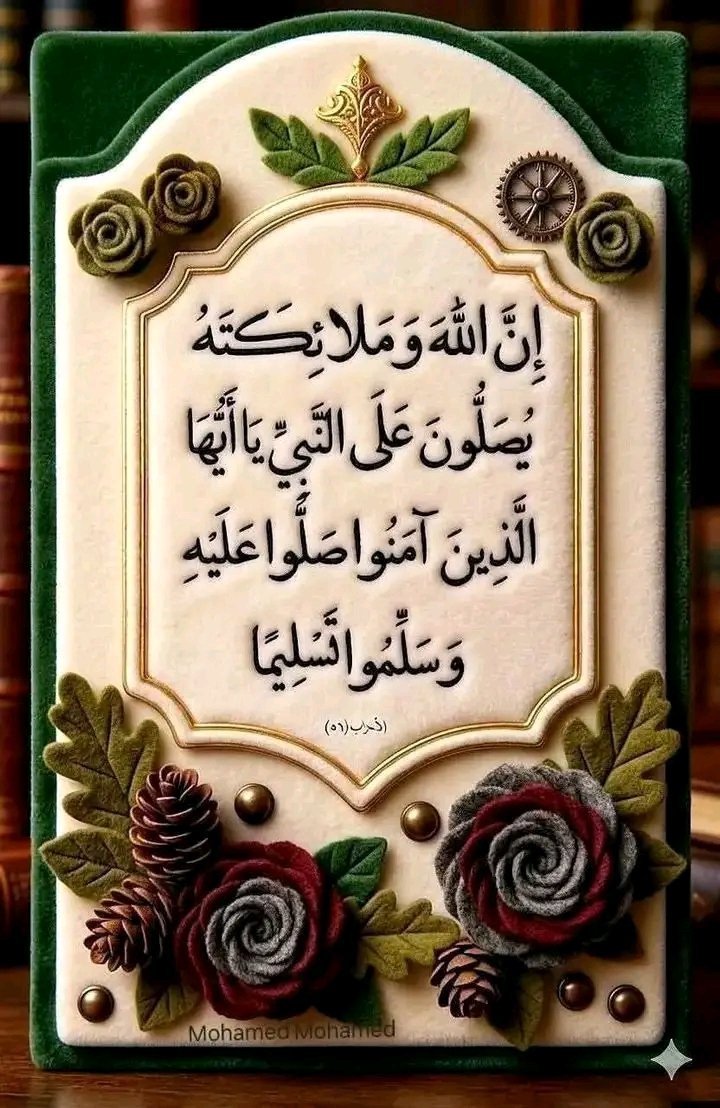 إِنَّ اللَّهَ وَمَلَائِكَتَهُ
يُصَلُّونَ عَلَى النَّبِيِّ يَا أَيُّهَا
الَّذِينَ آمَنُوا صَلُّوا عَلَيْهِ
وَسَلِّمُوا تَسْلِيمًا
(٥٦)
Mohamed Mohamed